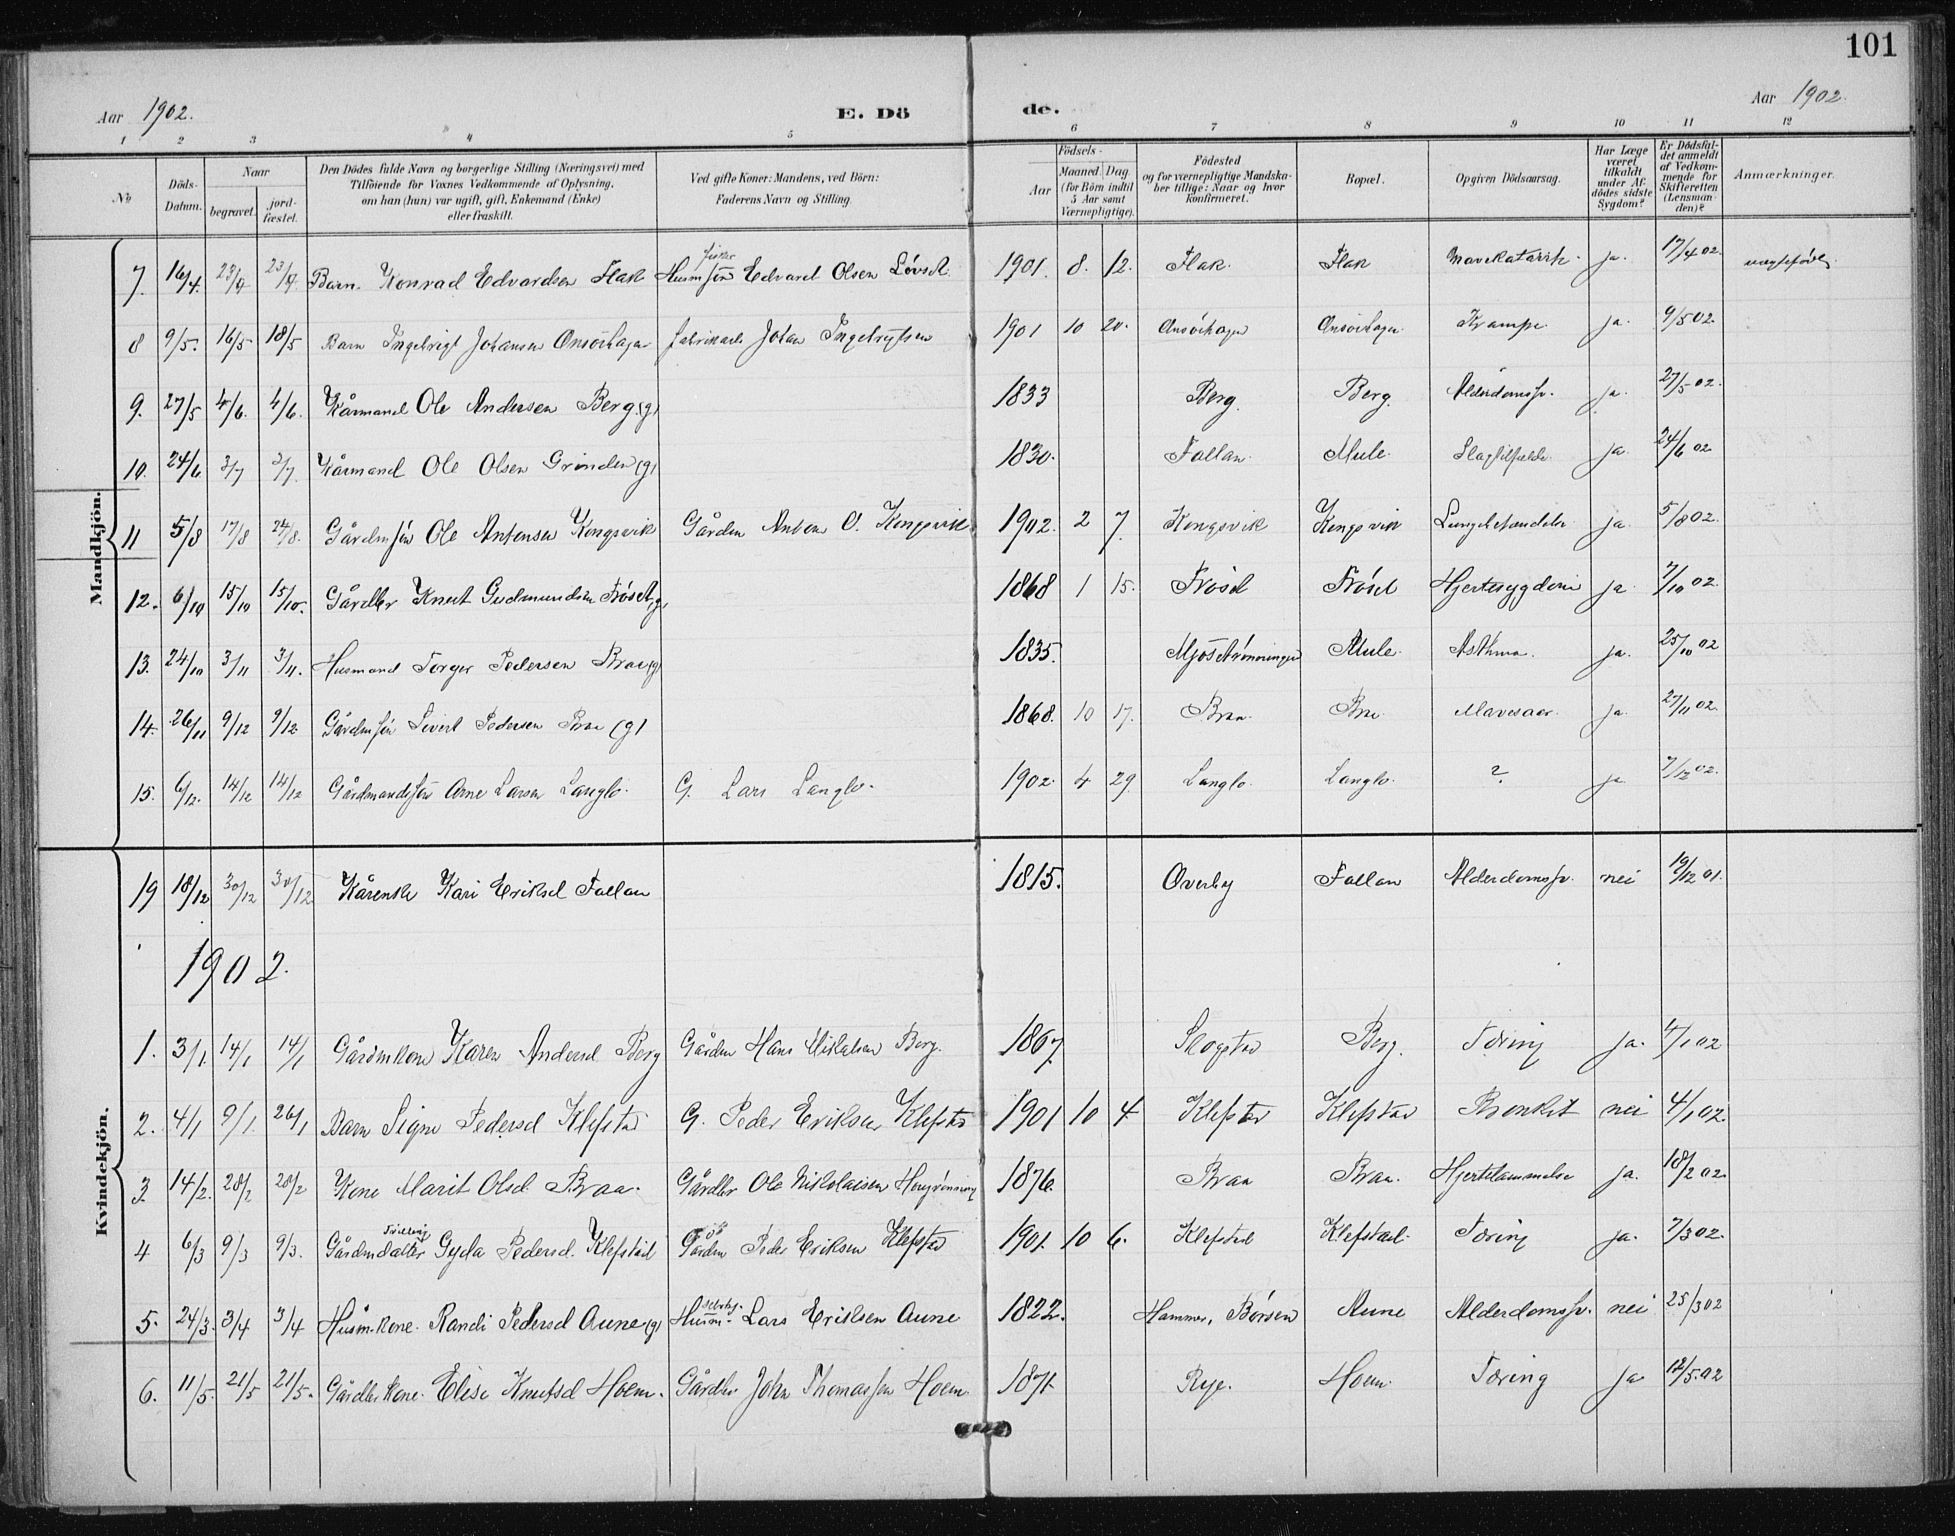 101
Aar 1902.
E. Dö
de.
Aar 1902.
1 2 3 4 5 6 7 8 9 10 11 12
No
Döds-Datum.
Naar
begravet.
jord-fæstet.
Den Dödes fulde Navn og borgerlige Stilling (Næringsvei) med
Tilföiende for Voxnes Vedkommende af Oplysning,
om han (hun) var ugift, gift, Enkemand (Enke)
eller fraskilt.
Ved gifte Koner: Mandens, ved Börn:
Faderens Navn og Stilling.
Födsels-
Aar
Maaned. Dag.
(for Börn indtil
5 Aar samt
Værnepligtige).
Födested
og for værnepligtige Mandska-
ber tillige: Naar og hvor
konfirmeret.
Bopæl.
Opgiven Dödsaarsag.
Har Læge
været
tilkaldt
under Af-
dödes sidste
Sygdom?
Er Dödsfal-
det anmeldt
af Vedkom-
mende for
Skifteretten
(Lensman-
den)?
Anmærkninger.
Mandkjön.
7. 16/4. 23/4 23/4. Barn Konrad Edvardsen Flak fisker Husmsøn Edvard Olsen Løvset 1901. 8. 12. Flak. Flak Mavekatarrh. ja. 17/4 02
8 9/5. 16/5 18/5 Barn Ingebrigt Johansen Onsøihagen fabrikarb Johan Ingebrigtsen 1901 10 20. Onsøihagen Onsøihagen Krampe ja. 9/5 02
9. 27/5 4/6. 4/6. Kårmand Ole Andersen Berg (g) 1833 Berg. Berg. Alderdomssv. ja. 27/5 02.
10. 24/6 3/7 3/7. Kårmand Ole Olsen Grinden (g) 1830. Fallan Mule Slagtilfælde ja 24/6 02
11 5/8 17/8 24/8. Gårdmsøn Ole Antonsen Kongsvik Gårdm Anton O. Kongsvik 1902. 2 7. Kongsvik Kongsvik Lungebetændelse ja 5/8 02.
12. 6/10 15/10 15/10. Gårdbr Knut Gudmundsen Frøset (g) 1868 1 15. Frøset Frøset Hjertesygdom ja 7/10 02.
13. 24/10 3/11 3/11. Husmand Torger Pedersen Braa (g) 1835. Mule Asthma. ja. 25/10 02
14. 26/11 9/12 9/12 Gårdmsøn Sivert Pedersen Braa (g) 1868. 10 17. Braa Braa Mavesaar. ja 27/11 02.
15. 6/12. 14/12 14/12 Gårdmandssøn Arne Larsen Langlo. G. Lars Langlo. 1902. 4 29 Langlo. Langlo. ? ja 7/12 02.
Kvindekjön.
19 18/12 30/12 30/12 Kårenke Kari Eriksd Fallan 1815. Overby Fallan Alderdomssv. nei 19/12 01.
1902.
1. 3/1. 14/1 14/1 Gårdmkone Karen Andersd Berg Gårdm Hans Nikolaisen Berg. 1867. Skogstad Berg. Tæring ja. 4/1 02
2. 4/1 9/1. 26/1 Barn Signe Pedersd Klefstad G. Peder Eriksen Klefstad 1901 10 4 Klefstad Klefstad Bronkit nei 4/1 02.
3. 14/2. 28/2 28/2 Kone Marit Olsd Braa. Gårdbr Ole Nikolaisen 1876. Braa Braa. Hjertelammelse ja. 18/2 02.
4 6/3 9/3 9/3. Tvilling Gårdmdatter Gyda Pedersd. Klefstad Gårdm Peder Eriksen Klefstad 1901. 10 6. Klefstad Klefstad. Tæring ja. 7/3 02.
5. 24/3. 3/4 3/4 Husm.kone. Randi Pedersd Aune (g) Husm. Lars Eriksen Aune 1822. Hammer, Børsen Aune Alderdomssv. nei 25/3 02
6. 11/5. 21/5 21/5. Gårdbr kone. Elise Knutsd Hoem. Gårdbr John Thomassen Hoem 1871. Rye. Hoem. Tæring ja 12/5.02